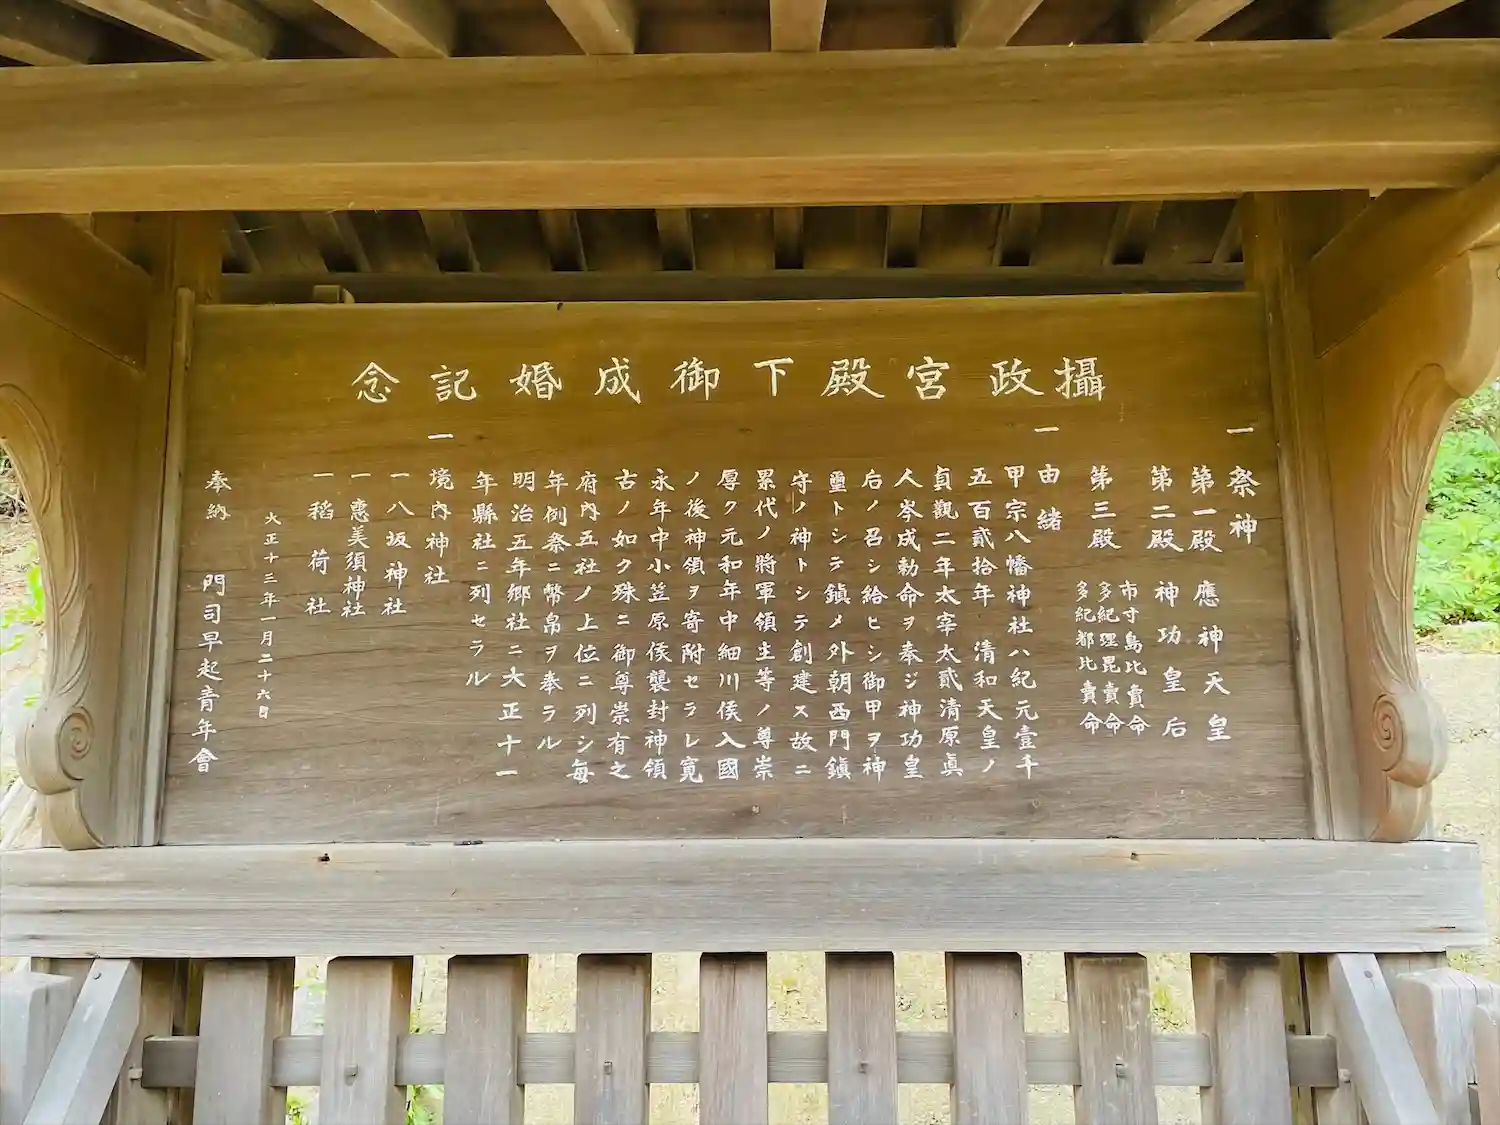 攝政宮殿下御成婚記念
一 祭神
第一殿 應神天皇
第二殿 神功皇后
第三殿 市寸島比賣命
多紀理毘賣命
多紀都比賣命
一 由緒
甲宗八幡神社ハ紀元壹千
五百貳拾年 淸和天皇ノ
貞觀二年太宰太貳清原眞
人岑成勅命ヲ奉ジ神功皇
后ノ召シ給ヒシ御甲ヲ神
璽トシテ鎭メ外朝西門鎭
守ノ神トシテ創建ス故ニ
累代ノ將軍領主等ノ尊崇
厚ク元和年中細川侯入國
ノ後神領ヲ寄附セラレ寛
永年中小笠原侯襲封神領
古ノ如ク殊ニ御尊崇有之
府内五社ノ上位ニ列シ每
年例祭ニ幣帛ヲ奉ラル
明治五年鄕社ニ大正十一
年縣社ニ列セラル
一 境內神社
一 八坂神社
一 惠美須神社
一 稻荷社
大正十三年一月二十六日
奉納 門司早起靑年會